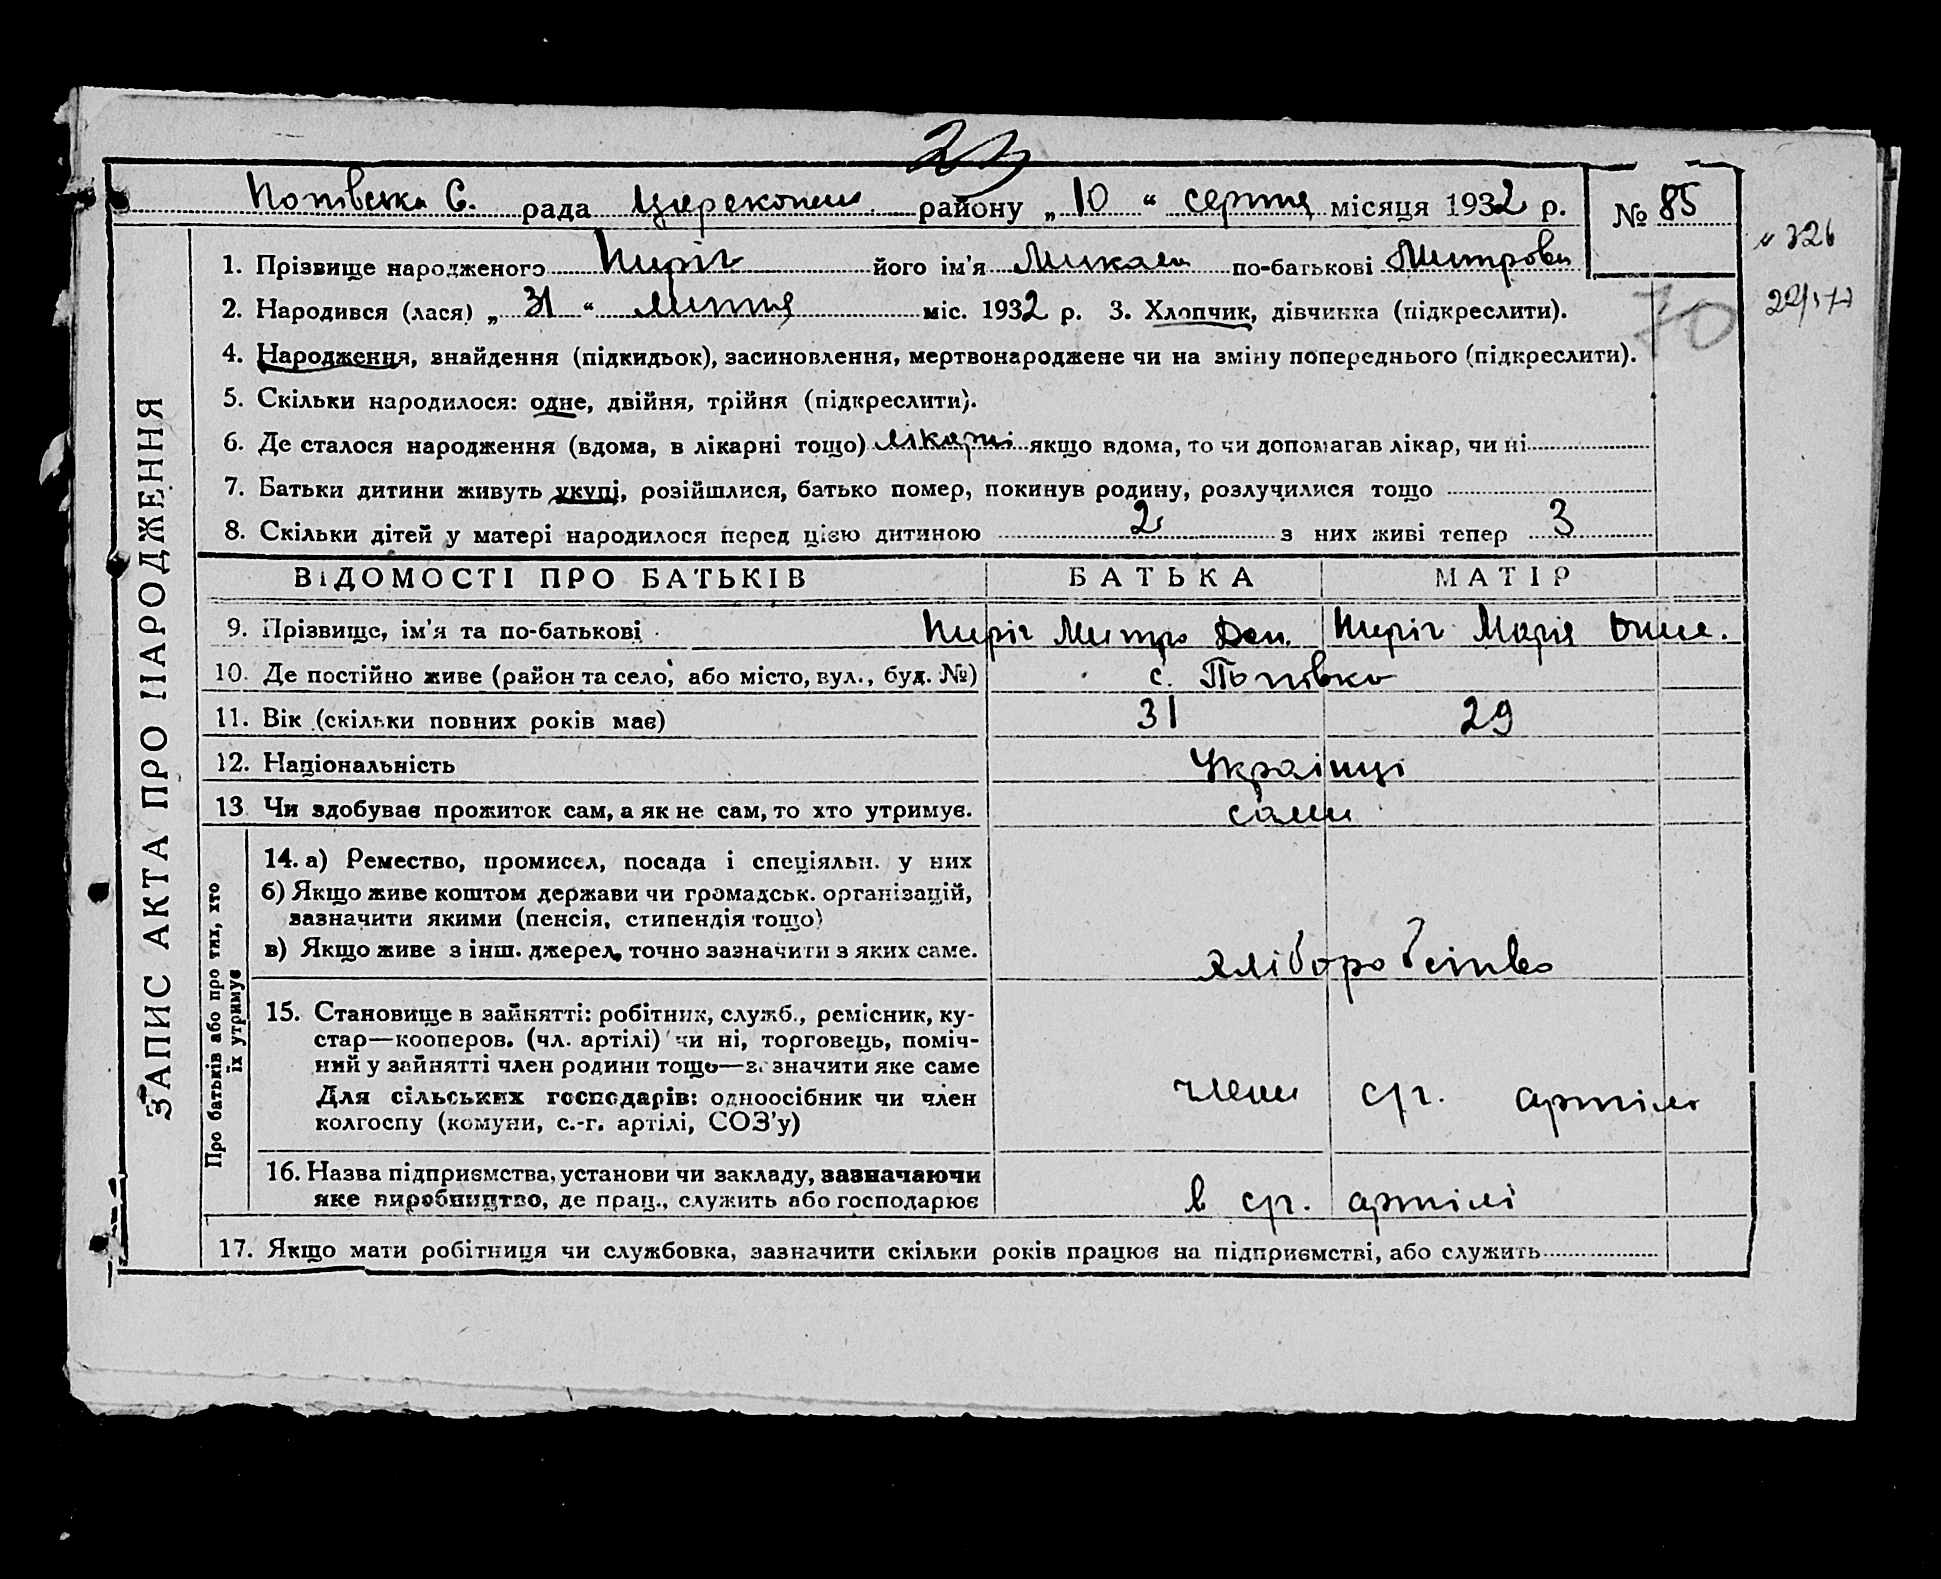 23
Попівська С. рада Царекопск. району „ 10 “ серпня місяця 1932 р. № 85
№ 326
1. Прізвище народженого Пиріг його ім'я Микола по-батькові Митрови
2. Народився (лася) „ 31 “ липня міс. 1932 р. 3. Хлопчик, дівчинка (підкреслити).
70
4. Народження, знайдення (підкидьок), засиновлення, мертвонароджене чи на зміну попереднього (підкреслити).
5. Скільки народилося: одне, двійня, трійня (підкреслити).
6. Де сталося народження (вдома, в лікарні тощо) лікарні якщо вдома, то чи допомагав лікар, чи ні
7. Батьки дитини живуть укупі, розійшлися, батько помер, покинув родину, розлучилися тощо
8. Скільки дітей у матері народилося перед цією дитиною 2 з них живі тепер 3
ЗАПИС АКТА ПРО НАРОДЖЕННЯ
ВІДОМОСТІ ПРО БАТЬКІВ БАТЬКА МАТІР
9. Прізвище, ім'я та по-батькові Пиріг Митро Дем. Пиріг Марія
10. Де постійно живе (район та село, або місто, вул., буд. №) с. Попівка
11. Вік (скільки повних років має) 31 29
12. Національність Українці
13 Чи здобував прожиток сам, а як не сам, то хто утримує. сами
Про батьків або про тих, хто
їх утримує
14. а) Ремество, промисел, посада і спеціяльн. у них
б) Якщо живе коштом держави чи громадськ. організацій,
зазначити якими (пенсія, стипендія тощо)
в) Якщо живе з інш. джерел, точно зазначити з яких саме. хліборобство
15. Становище в зайнятті: робітник, служб., ремісник, ку-
стар—кооперов. (чл. артілі) чи ні, торговець, поміч-
ний у зайнятті член родини тощо—зазначити яке саме
Для сільських господарів: одноосібник чи член
колгоспу (комуни, с.-г. артілі, СОЗ'у) член с/г. артілі
16. Назва підприємства, установи чи закладу, зазначаючи
яке виробництво, де прац., служить або господарює в с/г. артілі
17. Якщо мати робітниця чи службовка, зазначити скільки років працює на підприємстві, або служить